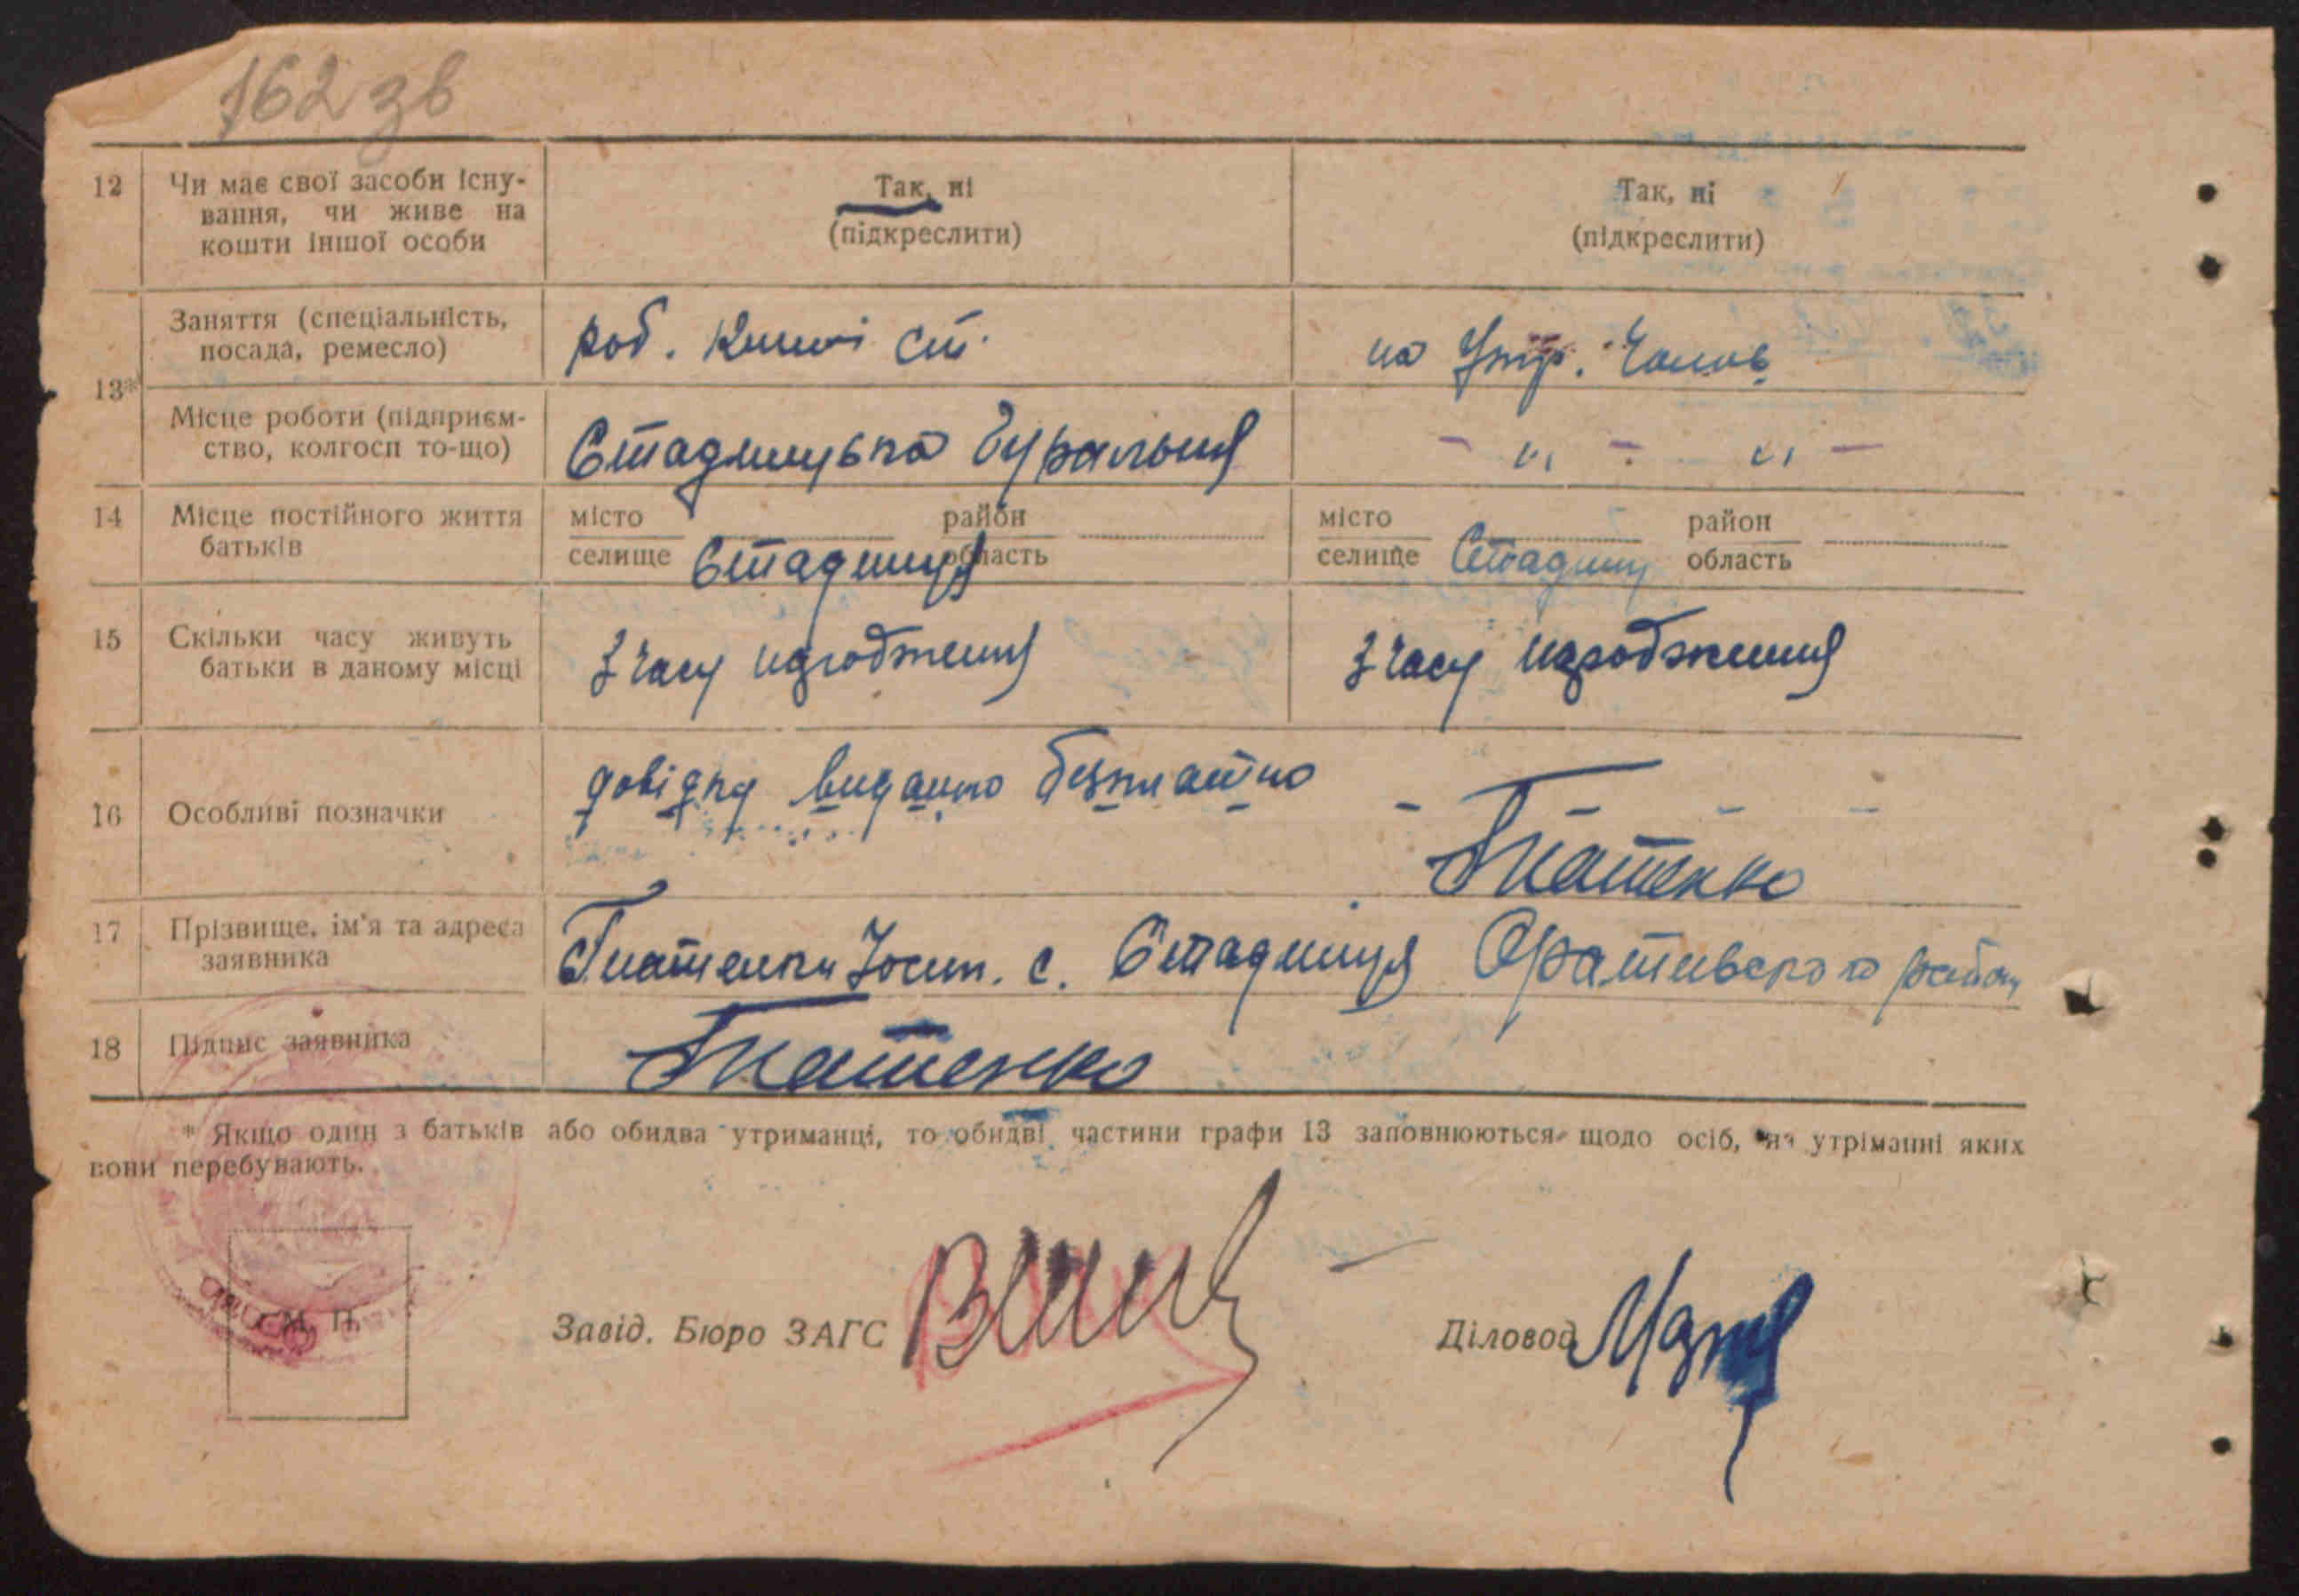 162 зв
12 Чи має свої засоби існу- Так, ні Так, ні
вання, чи живе на (підкреслити) (підкреслити)
кошти іншої особи
13* Заняття (спеціальність, роб. ст. на утр. чолов
посада, ремесло)
Місце роботи (підприєм- Стадницька Гуральня - " - " -
ство, колгосп то-що)
14 Місце постійного життя місто район місто район
батьків селище Стадниця область селище Стадниц область
15 Скільки часу живуть З часу народження З часу народження
батьки в даному місці
довідку видано безплатно - - - -
16 Особливі позначки
Гнатенко
17 Прізвище, ім'я та адреса Гнатенко с. Стадниця Оратівського району
заявника
18 Підпис заявника Гнатенко
* Якщо один з батьків або обидва утриманці, то обидві частини графи 13 заповнюються щодо осіб, на утріманні яких
вони перебувають.
М. П. Завід. Бюро ЗАГС Діловод